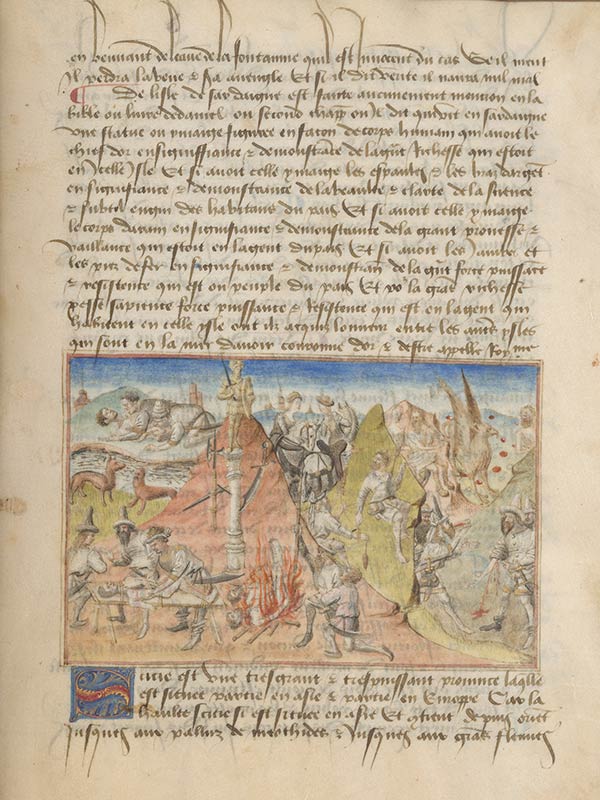 en beuvant de leaue de la fontainne qui est innocent du cas Se il ment
Il perdra la veue & sa avengle Et si il dit verite il naura nul mal
De lisle de sardaigne est faicte aucunement mencion en la
bible ou livre de daniel ou second chapp ou Il dit quil vit en sardaigne
vne statue ou ymaige figuree en facon de corps humain qui avoit le
chief dor en signiffiance & demonstrance de la grant Richesse qui estoit
en Icelle Isle Et si avoit celle ymaige les espaules & les braz dargent
en signifiance & demonstrance de la beaute & clarte de la science
& subtil engin des habitans du pais Et si avoit celle ymaige
le corps darain en signifiance & demonstrance de la grant prouesse &
vaillance qui estoit en la gent du pais Et si avoit les &
les piez de fer en signifiance & demonstran de la grant force puissance
& resistence qui est ou peuple du pais Et po la grat richesse
sapience force puissance & Resistence qui est en la gent qui
habitent en celle ysle ont ilz acquis lonneur entre les autres ysles
qui sont en la mer davoir couronne dor & destre appelle Royme
Sicie est vne tresgrant & trespuissant province laqlle
est situee partie en asie & partie en Europpe Car la
haulte sicie si est situee en asie Et contient depuis orient
Jusques aux palluz de meothides & Jusques aux grans fleuves